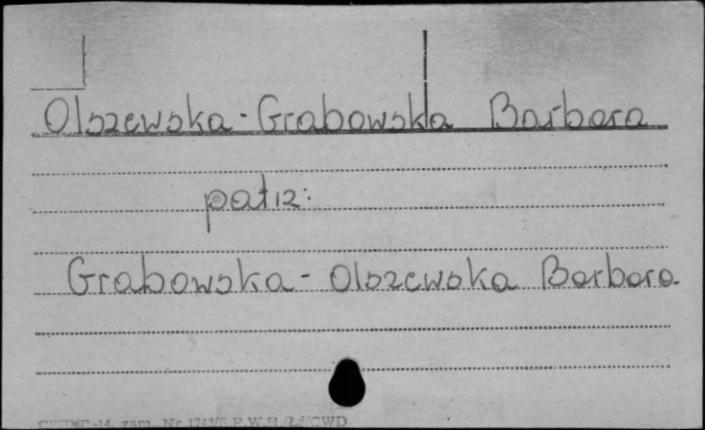 Olszewska-Grabowska Barbara
patrz:
Grabowska-Olszewska Barbara
zam. Nr